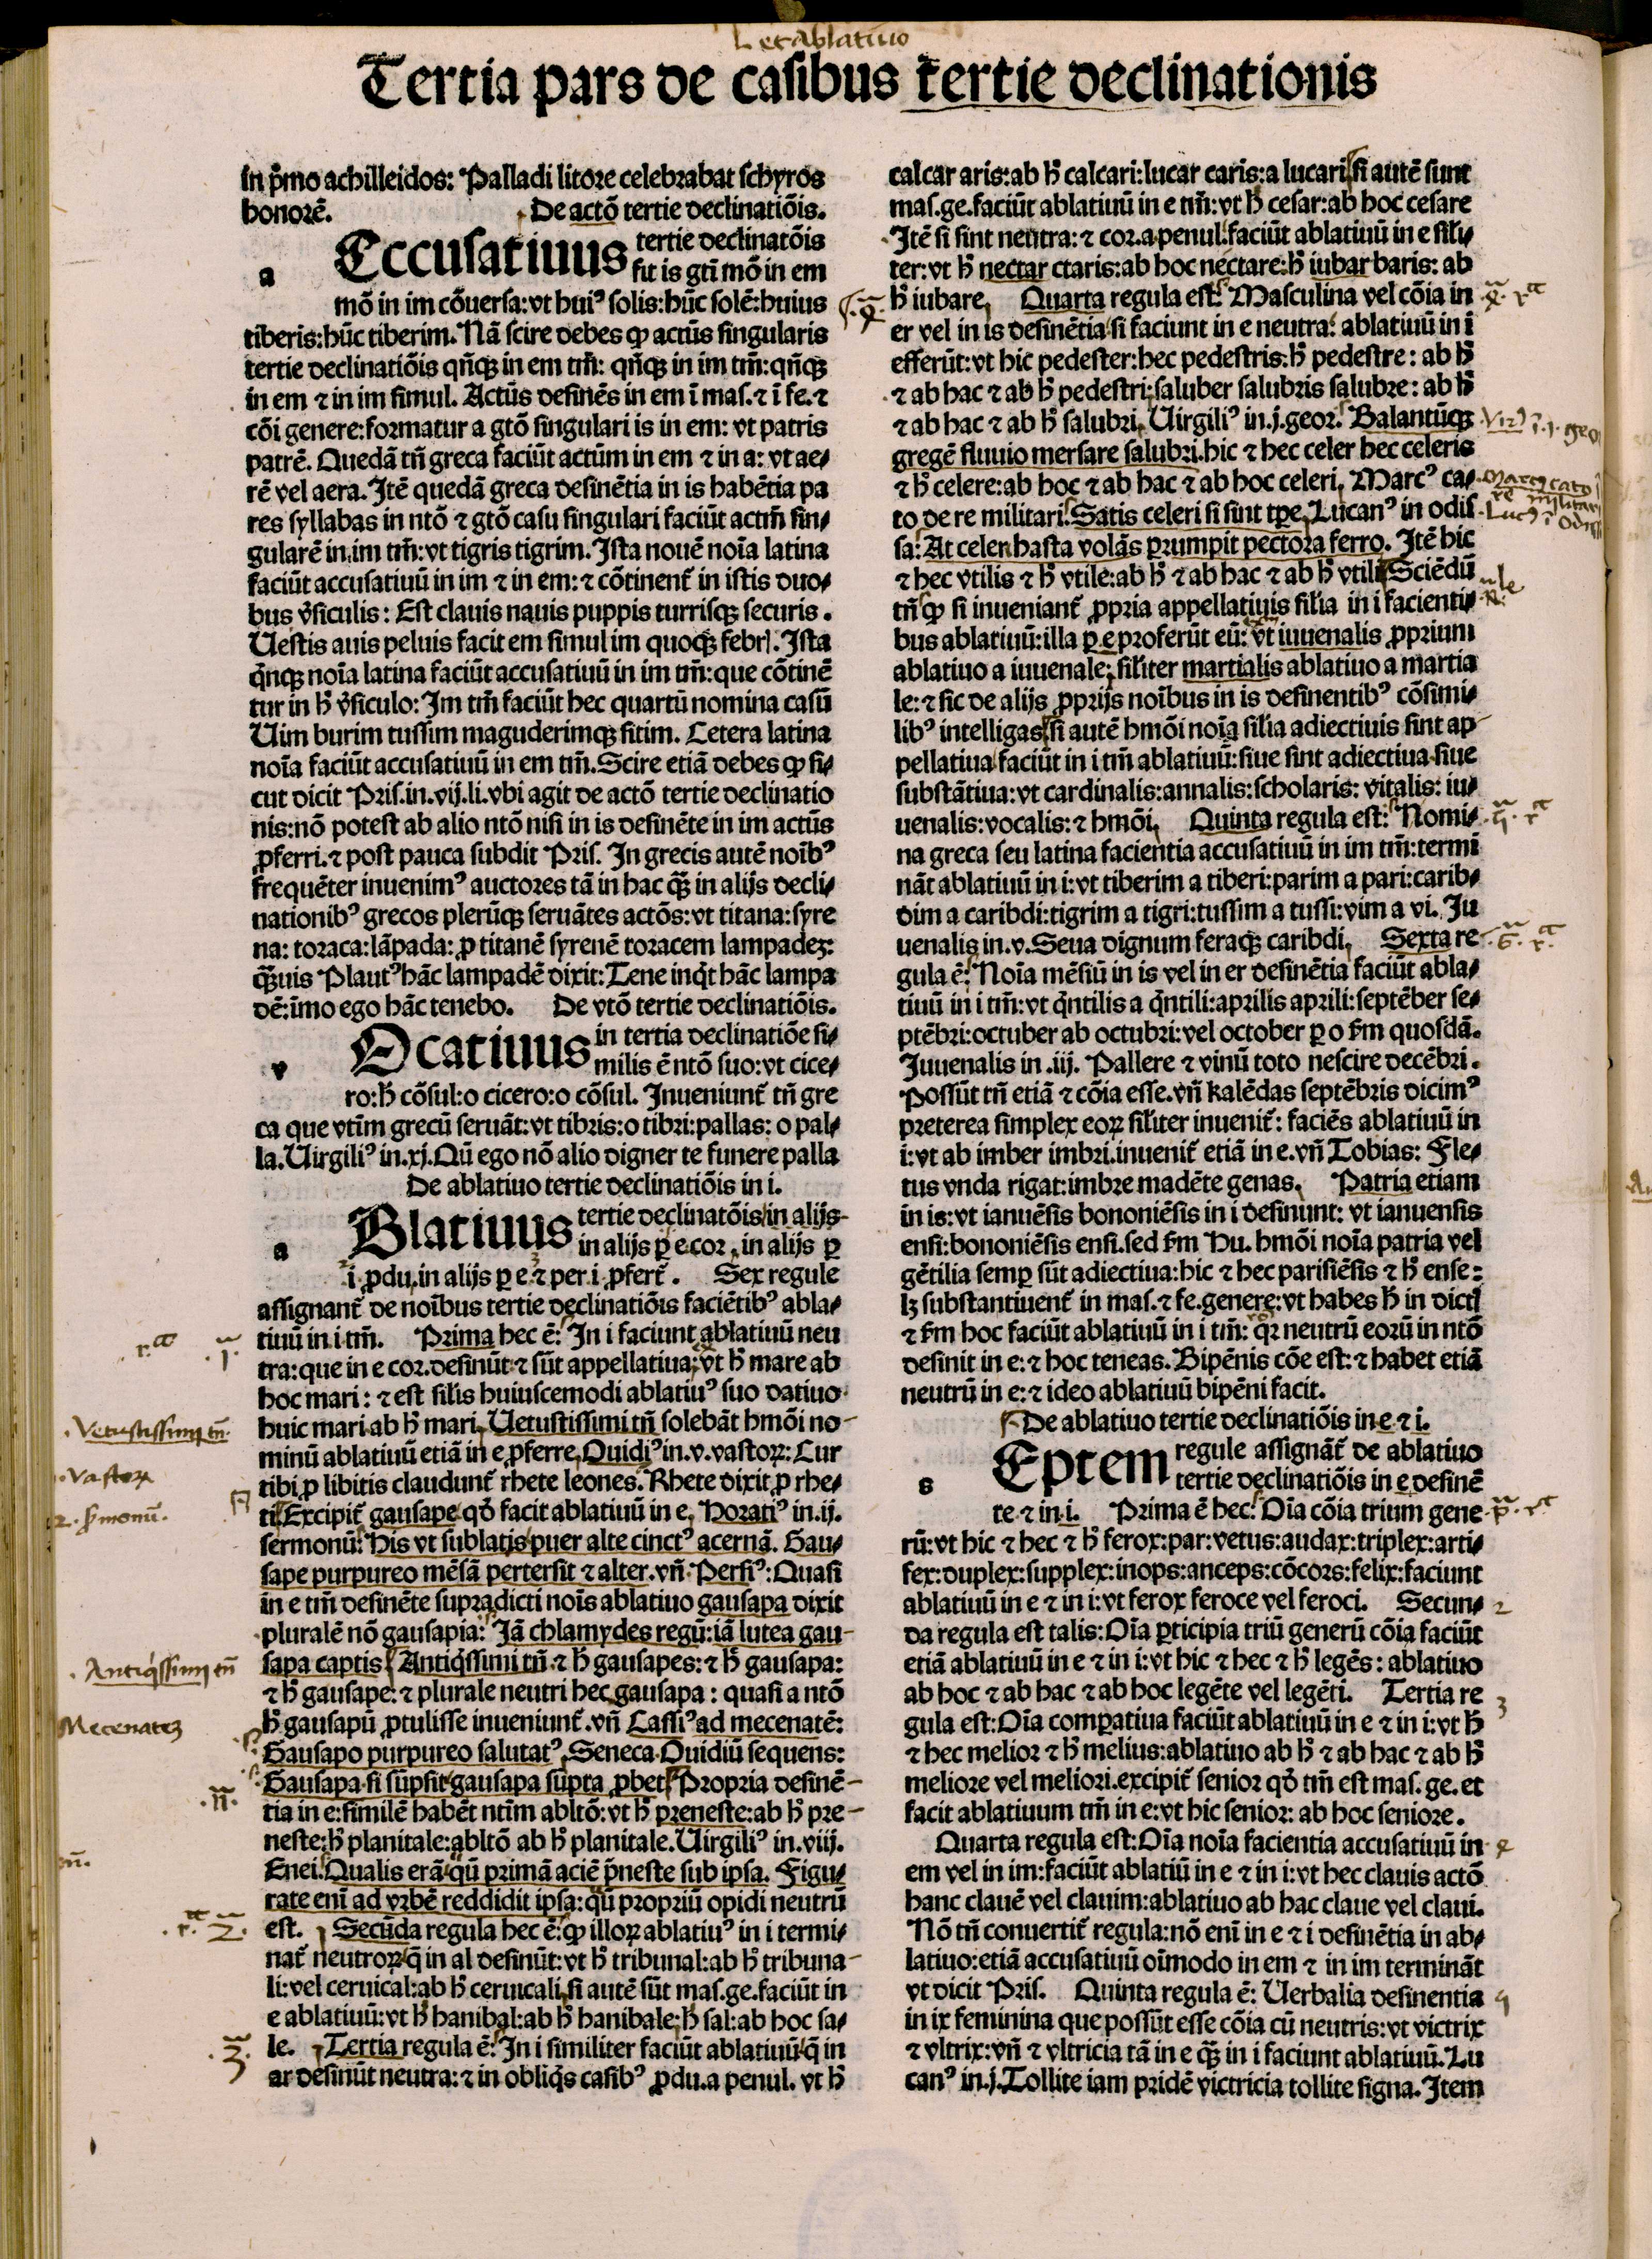 L et Ablatiuo
Tertia pars de casibus tertie declinationis
in p̄mo achilleidos: Palladi litore celebrabat schyros
honorē. De actō tertie declinatiōis.
a Eccusatiuus tertie declinatōis
fit is gti mō in em
mō in im cōuersa: vt huiꝰ solis: hūc solē: huius
tiberis: hūc tiberim. Nā scire debes ꝙ actūs singularis
tertie declinatiōis qn̄qꝫ in em tm̄: qn̄qꝫ in im tm̄: qn̄qꝫ
in em ⁊ in im simul. Actūs definēs in em ī mas. ⁊ ī fe. ⁊
cōi genere: formatur a gtō singulari is in em: vt patris
patrē. Quedā tn̄ greca faciūt actūm in em ⁊ in a: vt ae-
rē vel aera. Itē quedā greca definētia in is habētia pa
res syllabas in ntō ⁊ gtō casu singulari faciūt actm̄ sin-
gularē in im tm̄: vt tigris tigrim. Ista nouē noīa latina
faciūt accusatiuū in im ⁊ in em: ⁊ cōtinent̄ in istis duo-
bus v̄siculis: Est clauis nauis puppis turrisqꝫ securis.
Uestis auis peluis facit em simul im quoqꝫ febrꝭ. Ista
qͥnqꝫ noīa latina faciūt accusatiuū in im tm̄: que cōtinē
tur in h̄ v̄siculo: Im tm̄ faciūt hec quartū nomina casū
Uim burim tussim maguderimqꝫ sitim. Cetera latina
noīa faciūt accusatiuū in em tm̄. Scire etiā debes ꝙ si-
cut dicit Pris. in. vij. li. vbi agit de actō tertie declinatio
nis: nō potest ab alio ntō nisi in is definēte in im actūs
ꝓferri. ⁊ post pauca subdit Pris. In grecis autē noībꝰ
frequēter inuenimꝰ auctores tā in hac qꝫ̄ in alijs decli-
nationibꝰ grecos plerūqꝫ seruātes actōs: vt titana: syre
na: toraca: lāpada: ꝓ titanē syrenē toracem lampadeꝫ:
qꝫ̄uis Plautꝰ hāc lampadē dixit: Tene inqͥt hāc lampa
dē: īmo ego hāc tenebo. De vtō tertie declinatiōis.
v Ocatiuus in tertia declinatiōe si-
milis ē ntō suo: vt cice-
ro: h̄ cōsul: o cicero: o cōsul. Inueniunt̄ tn̄ gre
ca que vtīm grecū seruāt: vt tibris: o tibri: pallas: o pal-
la. Uirgiliꝰ in. xj. Qū ego nō alio digner te funere palla
De ablatiuo tertie declinatiōis in i.
a Blatiuus tertie declinatōis in alijs
in alijs ꝑ e cor. in alijs ꝑ
i ꝓdu. in alijs ꝑ e ⁊ per i ꝓfert̄. Sex regule
assignant̄ de noībus tertie declinatiōis faciētibꝰ abla-
tiuū in i tm̄. Prima hec ē: In i faciunt ablatiuū neu
tra: que in e cor. definūt ⁊ sūt appellatiua: vt h̄ mare ab
hoc mari: ⁊ est silīs huiuscemodi ablatiuꝰ suo datiuo
huic mari ab h̄ mari. Uetustissimi tn̄ solebāt hmōi no-
minū ablatiuū etiā in e ꝓferre. Ouidiꝰ in. v. vastoꝝ: Cur
tibi ꝓ libitis claudunt̄ rhete leones. Rhete dixit ꝓ rhe-
ti. Excipit̄ gausape qð facit ablatiuū in e. Horatiꝰ in. ij.
sermonū: His vt sublatis puer alte cinctꝰ acernā. Gau-
sape purpureo mēsā pertersit ⁊ alter. vn̄ Persiꝰ: Quasi
in e tm̄ definēte supradicti noīs ablatiuo gausapa dixit
pluralē nō gausapia: Iā chlamydes regū: iā lutea gau-
sapa captis. Antiqͥssimi tn̄ ⁊ h̄ gausapes: ⁊ h̄ gausapa:
⁊ h̄ gausape: ⁊ plurale neutri hec gausapa: quasi a ntō
h̄ gausapū ꝓtulisse inueniunt̄. vn̄ Cassiꝰ ad mecenatē:
Gausapo purpureo salutatꝰ. Seneca Ouidiū sequens:
Gausapa si sūpsit gausapa sūpta ꝓbet. Propria definē-
tia in e: similē habēt ntīm abltō: vt h̄ preneste: ab h̄ pre-
neste: h̄ planitale: abltō ab h̄ planitale. Uirgiliꝰ in. viij.
Enei. Qualis erā qū primā aciē p̄neste sub ipsa. Figu-
rate enī ad vrbē reddidit ipsa: qū propriū opidi neutrū
est. Secūda regula hec ē: ꝙ illoꝝ ablatiuꝰ in i termi-
nat̄ neutroꝝ q̄ in al definūt: vt h̄ tribunal: ab h̄ tribuna-
li: vel ceruical: ab h̄ ceruicali. si autē sūt mas. ge. faciūt in
e ablatiuū: vt h̄ hanibal: ab h̄ hanibale: h̄ sal: ab hoc sa-
le. Tertia regula ē: In i similiter faciūt ablatiuū q̄ in
ar definūt neutra: ⁊ in obliqͥs casibꝰ ꝓdu. a penul. vt h̄
calcar aris: ab h̄ calcari: lucar caris: a lucari. si autē sunt
mas. ge. faciūt ablatiuū in e tm̄: vt h̄ cesar: ab hoc cesare
Itē si sint neutra: ⁊ cor. a penul. faciūt ablatiuū in e sili-
ter: vt h̄ nectar ctaris: ab hoc nectare: h̄ iubar baris: ab
h̄ iubare. Quarta regula est: Masculina vel cōia in
er vel in is definētia si faciunt in e neutra: ablatiuū in i
efferūt: vt hic pedester: hec pedestris: h̄ pedestre: ab h̄
⁊ ab hac ⁊ ab h̄ pedestri: saluber salubris salubre: ab h̄
⁊ ab hac ⁊ ab h̄ salubri. Uirgiliꝰ in. j. geor. Balantūqꝫ
gregē fluuio mersare salubri. hic ⁊ hec celer hec celeris
⁊ h̄ celere: ab hoc ⁊ ab hac ⁊ ab hoc celeri. Marcꝰ ca-
to de re militari. Satis celeri si sint tꝑe. Lucanꝰ in odis
sa: At celer hasta volās prumpit pectora ferro. Itē hic
⁊ hec vtilis ⁊ h̄ vtile: ab h̄ ⁊ ab hac ⁊ ab h̄ vtili. Sciēdū
tn̄ ꝙ si inueniant̄ ꝓpria appellatiuis silīa in i facienti-
bus ablatiuū: illa ꝑ e proferūt eū: vt iuuenalis ꝓprium
ablatiuo a iuuenale: siliter martialis ablatiuo a martia
le: ⁊ sic de alijs ꝓprijs noībus in is definentibꝰ cōsimi-
libꝰ intelligas. si autē hmōi noīa silīa adiectiuis sint ap-
pellatiua faciūt in i tm̄ ablatiuū: siue sint adiectiua siue
substātiua: vt cardinalis: annalis: scholaris: vitalis: iu-
uenalis: vocalis: ⁊ hmōi. Quinta regula est: Nomi-
na greca seu latina facientia accusatiuū in im tm̄: termi
nāt ablatiuū in i: vt tiberim a tiberi: parim a pari: carib-
dim a caribdi: tigrim a tigri: tussim a tussi: vim a vi. Iu
uenalis in. v. Seua dignum feraqꝫ caribdi. Sexta re
gula ē: Noīa mēsiū in is vel in er definētia faciūt abla-
tiuū in i tm̄: vt qͥntilis a qͥntili: aprilis aprili: septēber se-
ptēbri: octuber ab octubri: vel october ꝑ o ẜm quosdā.
Iuuenalis in .iij. Pallere ⁊ vinū toto nescire decēbri.
Possūt tn̄ etiā ⁊ cōia esse. vn̄ kalēdas septēbris dicimꝰ
preterea simplex eoꝝ siliter inuenit̄: faciēs ablatiuū in
i: vt ab imber imbri. inuenit̄ etiā in e. vn̄ Tobias: Fle-
tus vnda rigat: imbre madēte genas. Patria etiam
in is: vt ianuēsis bononiēsis in i definunt: vt ianuensis
ensi: bononiēsis ensi. sed ẜm Hu. hmōi noīa patria vel
gētilia semꝑ sūt adiectiua: hic ⁊ hec parisiēsis ⁊ h̄ ense:
lꝫ substantiuent̄ in mas. ⁊ fe. genere: vt habes h̄ in dictꝭ
⁊ ẜm hoc faciūt ablatiuū in i tm̄: qꝛ neutrū eorū in ntō
desinit in e: ⁊ hoc teneas. Bipēnis cōe est: ⁊ habet etiā
neutrū in e: ⁊ ideo ablatiuū bipēni facit.
De ablatiuo tertie declinatiōis in e ⁊ i.
s Eptem regule assignāt̄ de ablatiuo
tertie declinatiōis in e definē
te ⁊ in i. Prima ē hec: Oīa cōia trium gene
rū: vt hic ⁊ hec ⁊ h̄ ferox: par: vetus: audax: triplex: arti-
fex: duplex: supplex: inops: anceps: cōcors: felix: faciunt
ablatiuū in e ⁊ in i: vt ferox feroce vel feroci. Secun-
da regula est talis: Oīa ꝑticipia triū generū cōia faciūt
etiā ablatiuū in e ⁊ in i: vt hic ⁊ hec ⁊ h̄ legēs: ablatiuo
ab hoc ⁊ ab hac ⁊ ab hoc legēte vel legēti. Tertia re
gula est: Oīa comꝑatiua faciūt ablatiuū in e ⁊ in i: vt h̄
⁊ hec melior ⁊ h̄ melius: ablatiuo ab h̄ ⁊ ab hac ⁊ ab h̄
meliore vel meliori. excipit̄ senior qð tm̄ est mas. ge. et
facit ablatiuum tm̄ in e: vt hic senior: ab hoc seniore.
Quarta regula est: Oīa noīa facientia accusatiuū in
em vel in im: faciūt ablatiū in e ⁊ in i: vt hec clauis actō
hanc clauē vel clauim: ablatiuo ab hac claue vel claui.
Nō tn̄ conuertit̄ regula: nō enī in e ⁊ i definētia in ab-
latiuo: etiā accusatiuū oīmodo in em ⁊ in im termināt
vt dicit Pris. Quinta regula ē: Uerbalia desinentia
in ix feminina que possūt esse cōia cū neutris: vt victrix
⁊ vltrix: vn̄ ⁊ vltricia tā in e qꝫ̄ in i faciunt ablatiuū. Lu
canꝰ in. j. Tollite iam pridē victricia tollite signa. Item
r.a .1.
Vetustissimi tn̄.
Vastoꝝ
2. ẜmonū.
Antiqͥssimi tn̄
Mecenateꝫ
.n̄.
r.a 2.
.3.
4. ra
Vir) ī. j. geo
Marcꝰ cato ī
re militari
Lucꝰ ī Odiss
5. ra
6. ra
p. ra
2
3
4
5